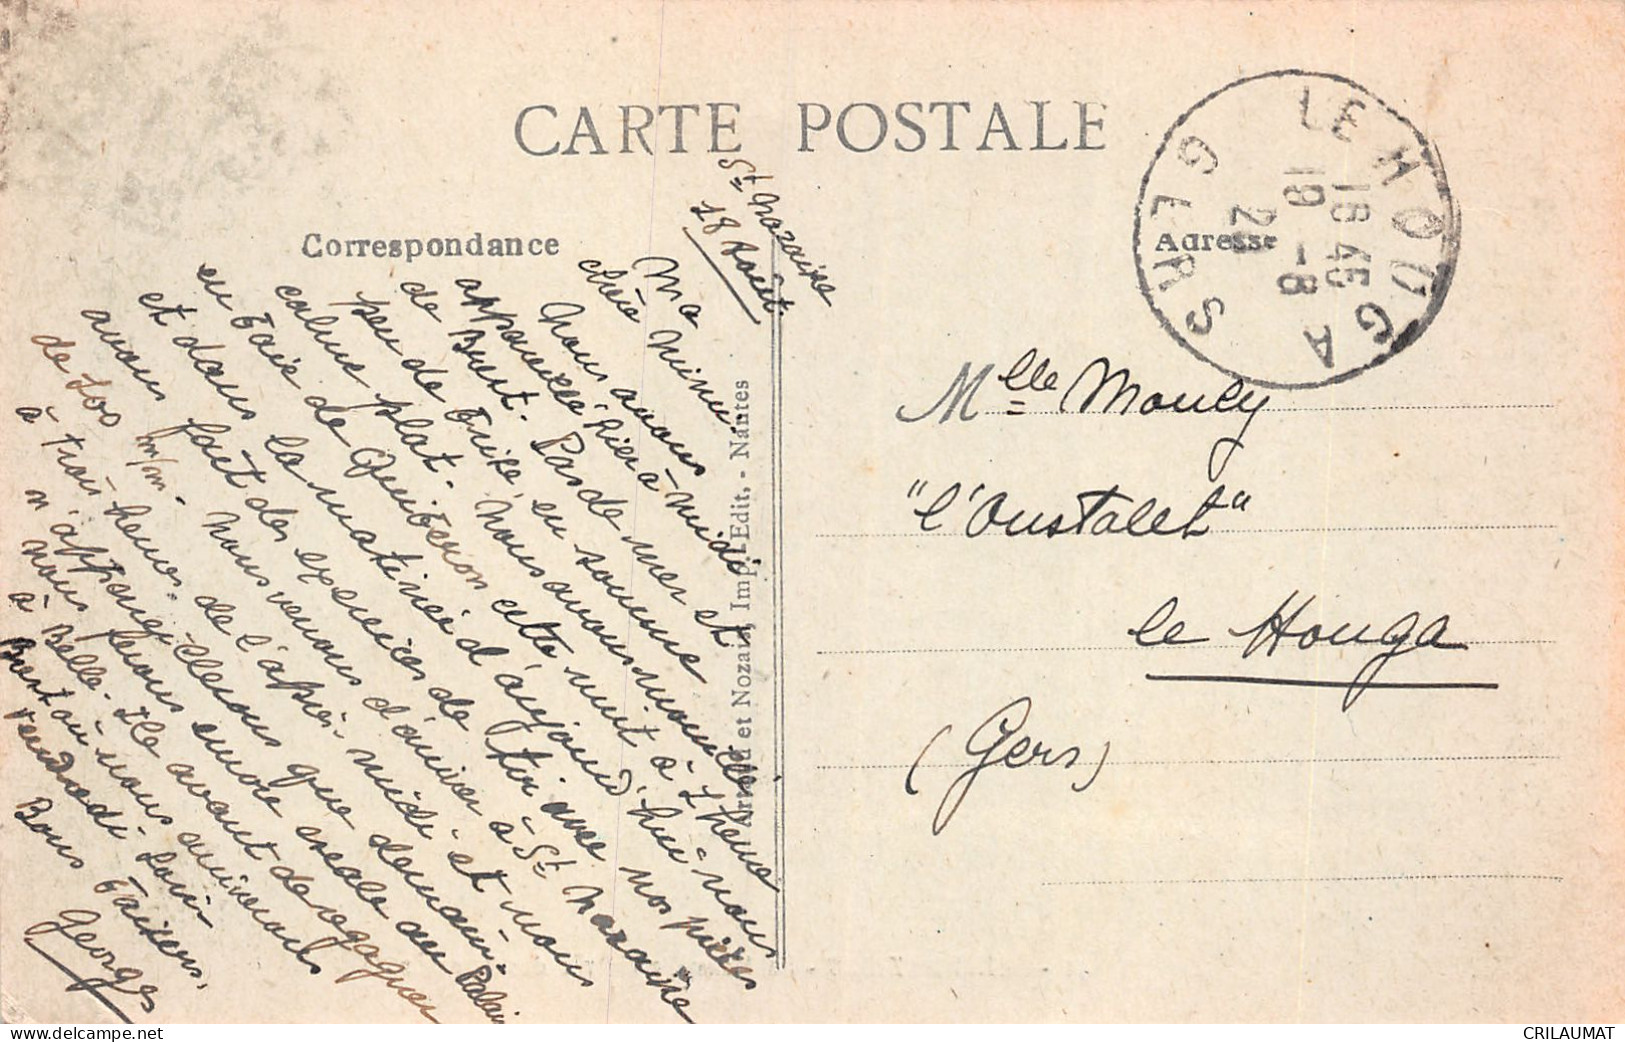 CARTE POSTALE
Correspondance
Adresse
St Nazaire
18 Août
Ma
chère Minu.
Nous avons
appareillé hier à midi
de Brest. Pas de mer et
peu de brise, en somme
calme plat. Nous avons mouillé
en baie de Quiberon cette nuit à 1 heure
et dans la matinée d'aujourd'hui nous
avons fait des exercices de tir avec nos pièces
de 100 m/m. Nous venons d'arriver à St Nazaire
à trois heures de l'après-midi et nous
n'appareillerons que demain.
nous ferons encore escale au Palais
à Belle-Ile avant de regagner
Brest où nous arriverons
vendredi soir.
Bons baisers.
Georges
Artaud et Nozais, Imp.-Edit. - Nantes
LE HOUGA
GERS
18 45
19 -8
20
Mlle Moucy
"l'Oustalet"
le Houga
(Gers)
CRILAUMAT